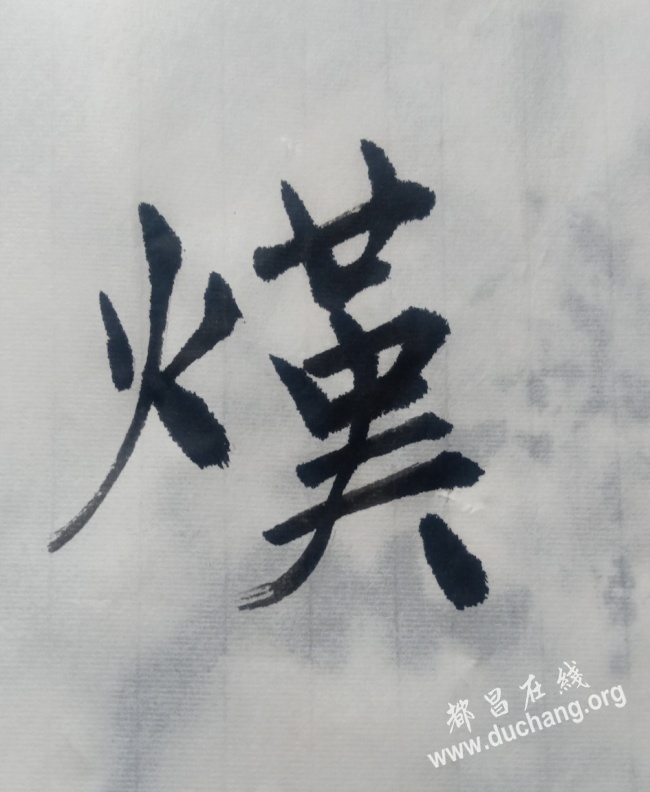 熯
都昌在线
www.duchang.org